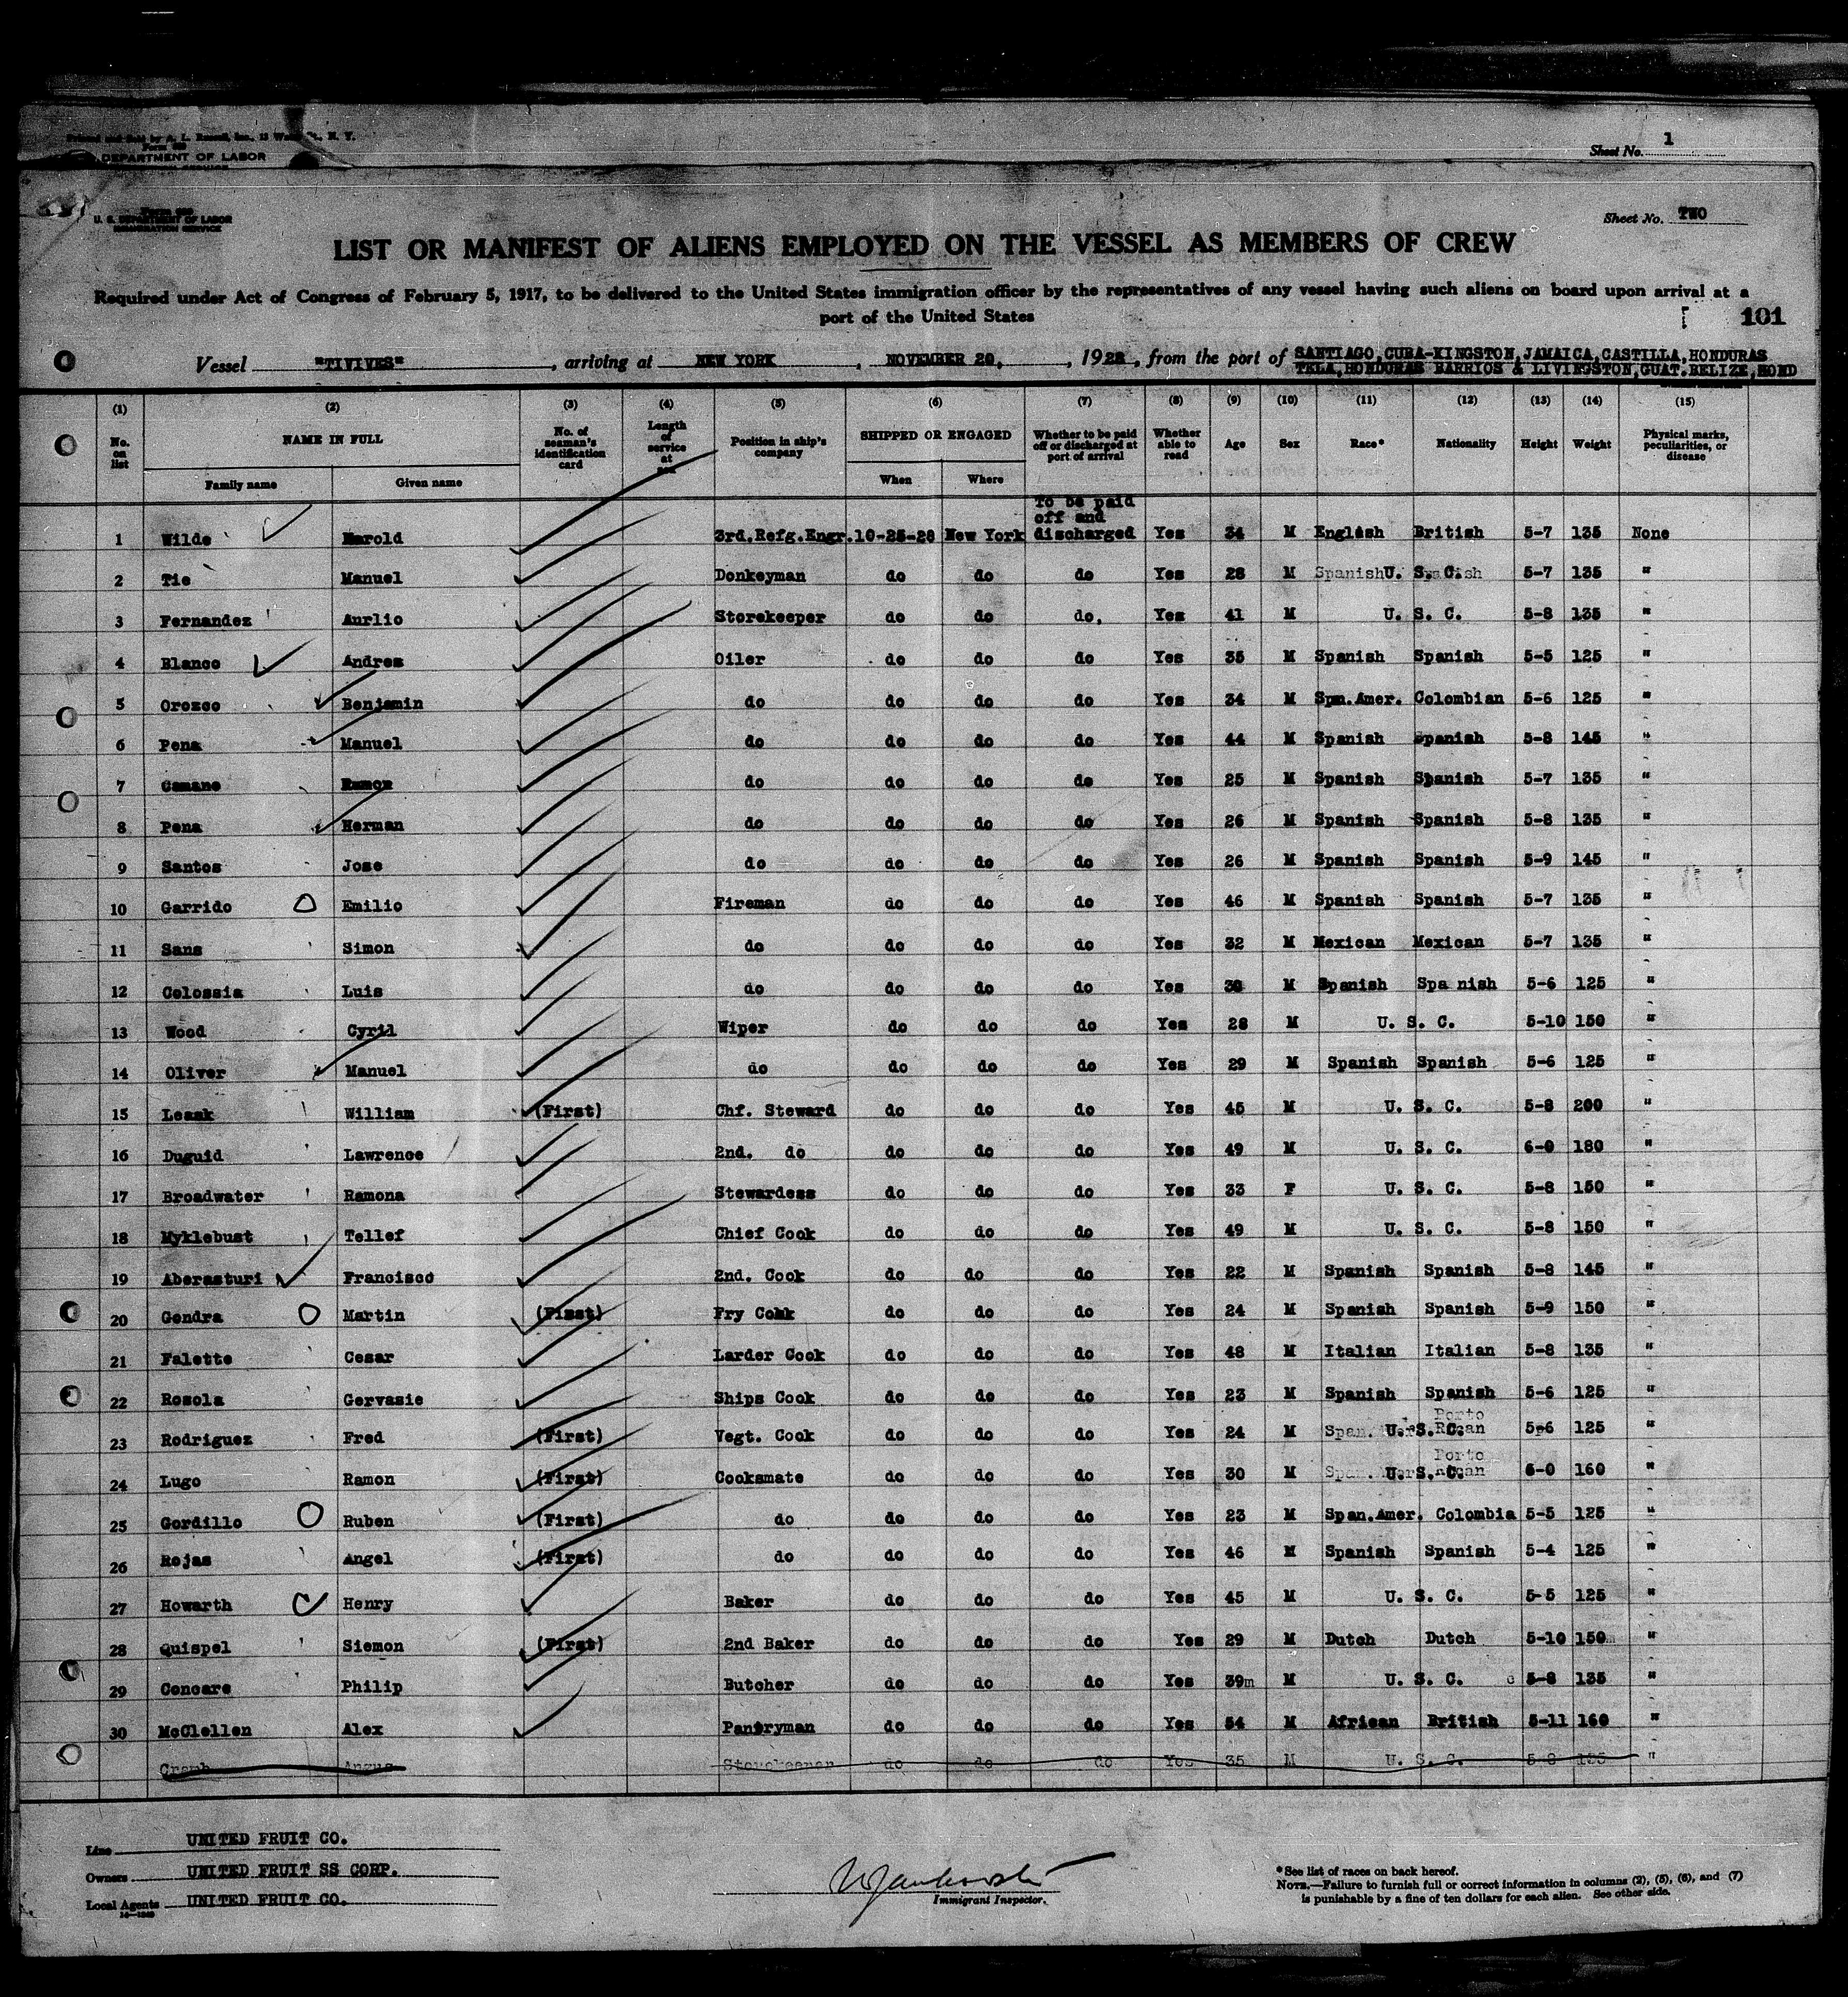 Printed and Sold by A. L. Russell, Inc., N. Y.
DEPARTMENT OF LABOR
Sheet No. 1
U. S. DEPARTMENT OF LABOR
IMMIGRATION SERVICE
Sheet No. TWO
LIST OR MANIFEST OF ALIENS EMPLOYED ON THE VESSEL AS MEMBERS OF CREW
Required under Act of Congress of February 5, 1917, to be delivered to the United States immigration officer by the representatives of any vessel having such aliens on board upon arrival at a
port of the United States
101
Vessel "TIVIVES", arriving at NEW YORK, NOVEMBER 20, 1928, from the port of SANTIAGO,CUBA-KINGSTON,JAMAICA,CASTILLA,HONDURAS
TELA,HONDURAS BARRIOS & LIVINGSTON,GUAT.BELIZE,HOND
(1) (2) (3) (4) (5) (6) (7) (8) (9) (10) (11) (12) (13) (14) (15)
No. on list NAME IN FULL No. of seaman's identification card Length of service at sea Position in ship's company SHIPPED OR ENGAGED Whether to be paid off or discharged at port of arrival Whether able to read Age Sex Race* Nationality Height Weight Physical marks, peculiarities, or disease
Family name Given name When Where
To be paid
off and
1 Wilde Harold 3rd.Refg.Engr. 10-25-28 New York discharged Yes 34 M English British 5-7 135 None
2 Tie Manuel Donkeyman do do do Yes 28 M Spanish U. S. C. 5-7 135 "
3 Fernandez Aurlio Storekeeper do do do. Yes 41 M U. S. C. 5-8 135 "
4 Blanco Andres Oiler do do do Yes 35 M Spanish Spanish 5-5 125 "
5 Orozco Benjamin do do do do Yes 34 M Spn.Amer. Colombian 5-6 125 "
6 Pena Manuel do do do do Yes 44 M Spanish Spanish 5-8 145 "
7 Camano Ramon do do do do Yes 25 M Spanish Spanish 5-7 135 "
8 Pena Herman do do do do Yes 26 M Spanish Spanish 5-8 135 "
9 Santos Jose do do do do Yes 26 M Spanish Spanish 5-9 145 "
10 Garrido Emilio Fireman do do do Yes 46 M Spanish Spanish 5-7 135 "
11 Sans Simon do do do do Yes 32 M Mexican Mexican 5-7 135 "
12 Colossia Luis do do do do Yes 30 M Spanish Spa nish 5-6 125 "
13 Wood Cyril Wiper do do do Yes 28 M U. S. C. 5-10 150 "
14 Oliver Manuel do do do do Yes 29 M Spanish Spanish 5-6 125 "
15 Leask William (First) Chf. Steward do do do Yes 45 M U. S. C. 5-8 200 "
16 Duguid Lawrence 2nd. do do do do Yes 49 M U. S. C. 6-0 180 "
17 Broadwater Ramona Stewardess do do do Yes 33 F U. S. C. 5-8 150 "
18 Myklebust Tellef Chief Cook do do do Yes 49 M U. S. C. 5-8 150 "
19 Aberasturi Francisco 2nd. Cook do do do Yes 22 M Spanish Spanish 5-8 145 "
20 Gondra Martin (First) Fry Cook do do do Yes 24 M Spanish Spanish 5-9 150 "
21 Falette Cesar Larder Cook do do do Yes 48 M Italian Italian 5-8 135 "
22 Rosola Gervasie Ships Cook do do do Yes 23 M Spanish Spanish 5-6 125 "
Porto
23 Rodriguez Fred (First) Vegt. Cook do do do Yes 24 M Span. U. S. C. 5-6 125 "
Porto
24 Lugo Ramon (First) Cooksmate do do do Yes 30 M U. S. C. 6-0 160 "
25 Gordillo Ruben (First) do do do do Yes 23 M Span.Amer. Colombia 5-5 125 "
26 Rojas Angel (First) do do do do Yes 46 M Spanish Spanish 5-4 125 "
27 Howarth Henry Baker do do do Yes 45 M U. S. C. 5-5 125 "
28 Quispel Siemon (First) 2nd Baker do do do Yes 29 M Dutch Dutch 5-10 150 "
29 Concare Philip Butcher do do do Yes 39m M U. S. C. 5-8 135 "
30 McClellen Alex Pantryman do do do Yes 54 M African British 5-11 160 "
Angus Storekeeper do do do Yes 35 M U. S. C. 5-8 135 "
Line UNITED FRUIT CO.
Owners UNITED FRUIT SS CORP.
Local Agents UNITED FRUIT CO.
Immigrant Inspector.
*See list of races on back hereof.
NOTE.—Failure to furnish full or correct information in columns (2), (5), (6), and (7)
is punishable by a fine of ten dollars for each alien. See other side.